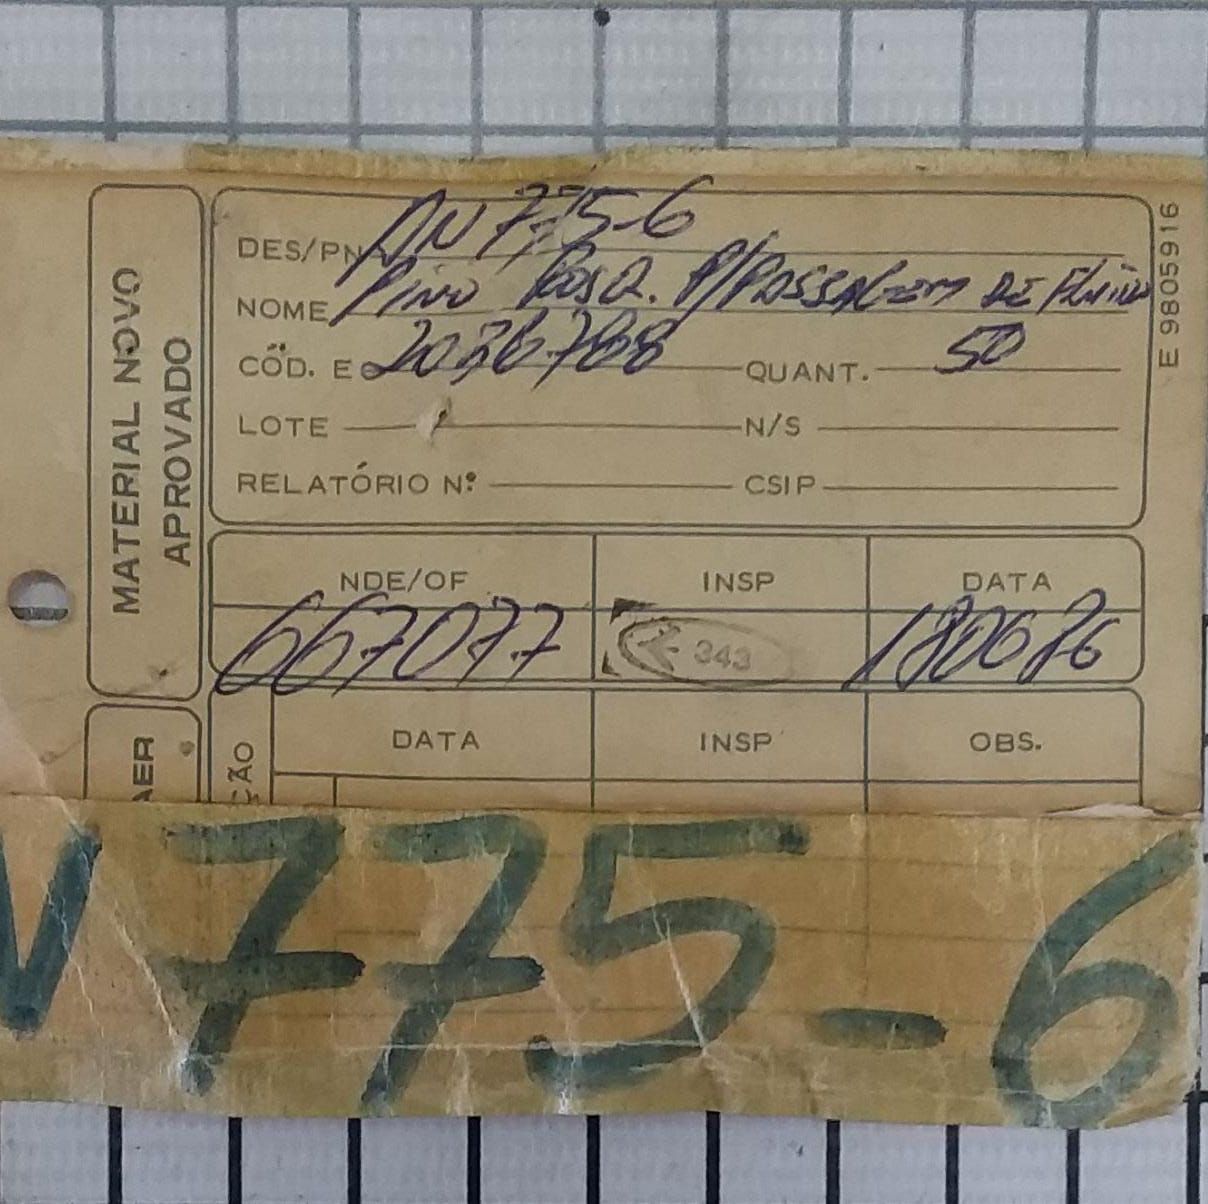 MATERIAL NOVO
APROVADO
DES/PN AN775-6
NOME Pino Rosq. P/PASSAGEM DE
CÖD. E 2036788 QUANT. 50
LOTE N/S
RELATÓRIO Nº CSIP
E 9805916
NDE/OF INSP DATA
667077 343 180686
DATA INSP OBS.
ÇÃO
AER
N775-6